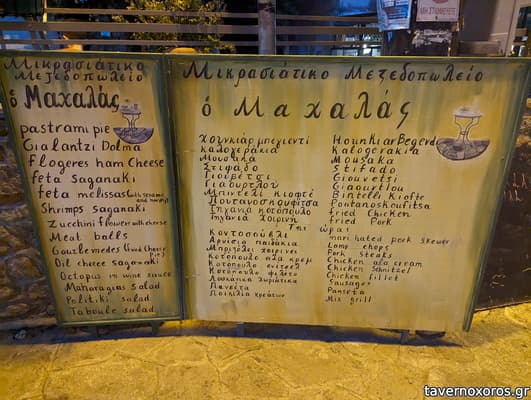 Μικρασιάτικο
Μεζεδοπωλείο
ὁ Μαχαλάς
pastrami pie
Gialantzi Dolma
flogeres ham Cheese
feta saganaki
feta melissas with sesame and honey
Shrimps saganaki
Zucchini flowers with cheese
Meat balls
Oil cheese saganaki
Octopus in wine sauce
Politiki salad
Taboule salad
Μικρασιάτικο Μεζεδοπωλείο
ὁ Μαχαλάς
Χουνκιάρ μπεγιεντί
Hounkiar Begendi
καλογεράκια
Kalogerakia
Μουσακά
Mousaka
Στιφάδο
Stifado
Γιουβέτσι
Giouvetsi
Γιαουρτλού
Giaourtlou
Μπιντελί κιοφτέ
Bintelli Kiofte
Πουτανοσκουφίτσα
Poutanoskoufitsa
Τηγανιά κοτόπουλο
fried Chicken
Τηγανιά χοιρινή
fried Pork
Της ώρας
Κοντοσούβλι
marinated pork skewer
Αρνίσια παϊδάκια
Lamp chops
Μπριζόλες χοιρινές
Pork steaks
Κοτόπουλο αλά κρεμ
Chicken ala cream
Κοτόπουλο σνίτσελ
Chicken Schnitzel
Κοτόπουλο φιλέτο
Chicken fillet
Λουκάνικα χωριάτικα
Sausages
Πανσέτα
Panseta
Ποικιλία κρεάτων
Mix grill
tavernoxoros.gr